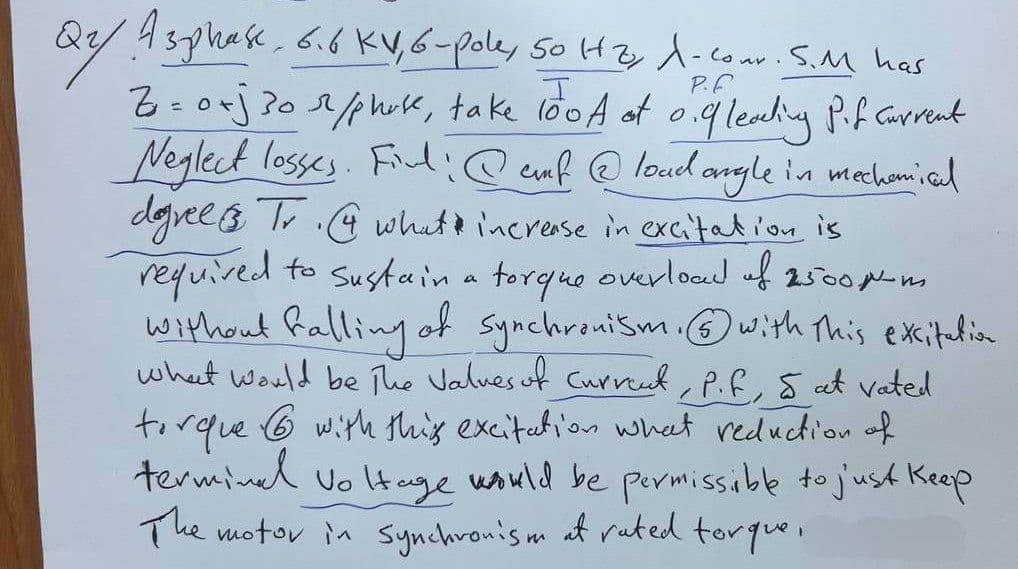 Q2/ A 3phase, 6.6 KV, 6-pole, 50 Hz, λ-conn. S.M has
Z = 0+j30 Ω/phase, take 100A at 0.9 leading P.f current
I P.f
Neglect losses. Find: ① emf ② load angle in mechanical
dgree ③ Tr . ④ what increase in excitation is
required to sustain a torque overload of 2500 N-m
without falling of synchronism. ⑤ with This excitation
what would be The Values of Current, P.f, δ at rated
torque ⑥ with this excitation what reduction of
terminal Voltage would be permissible to just Keep
The motor in synchronism at rated torque.